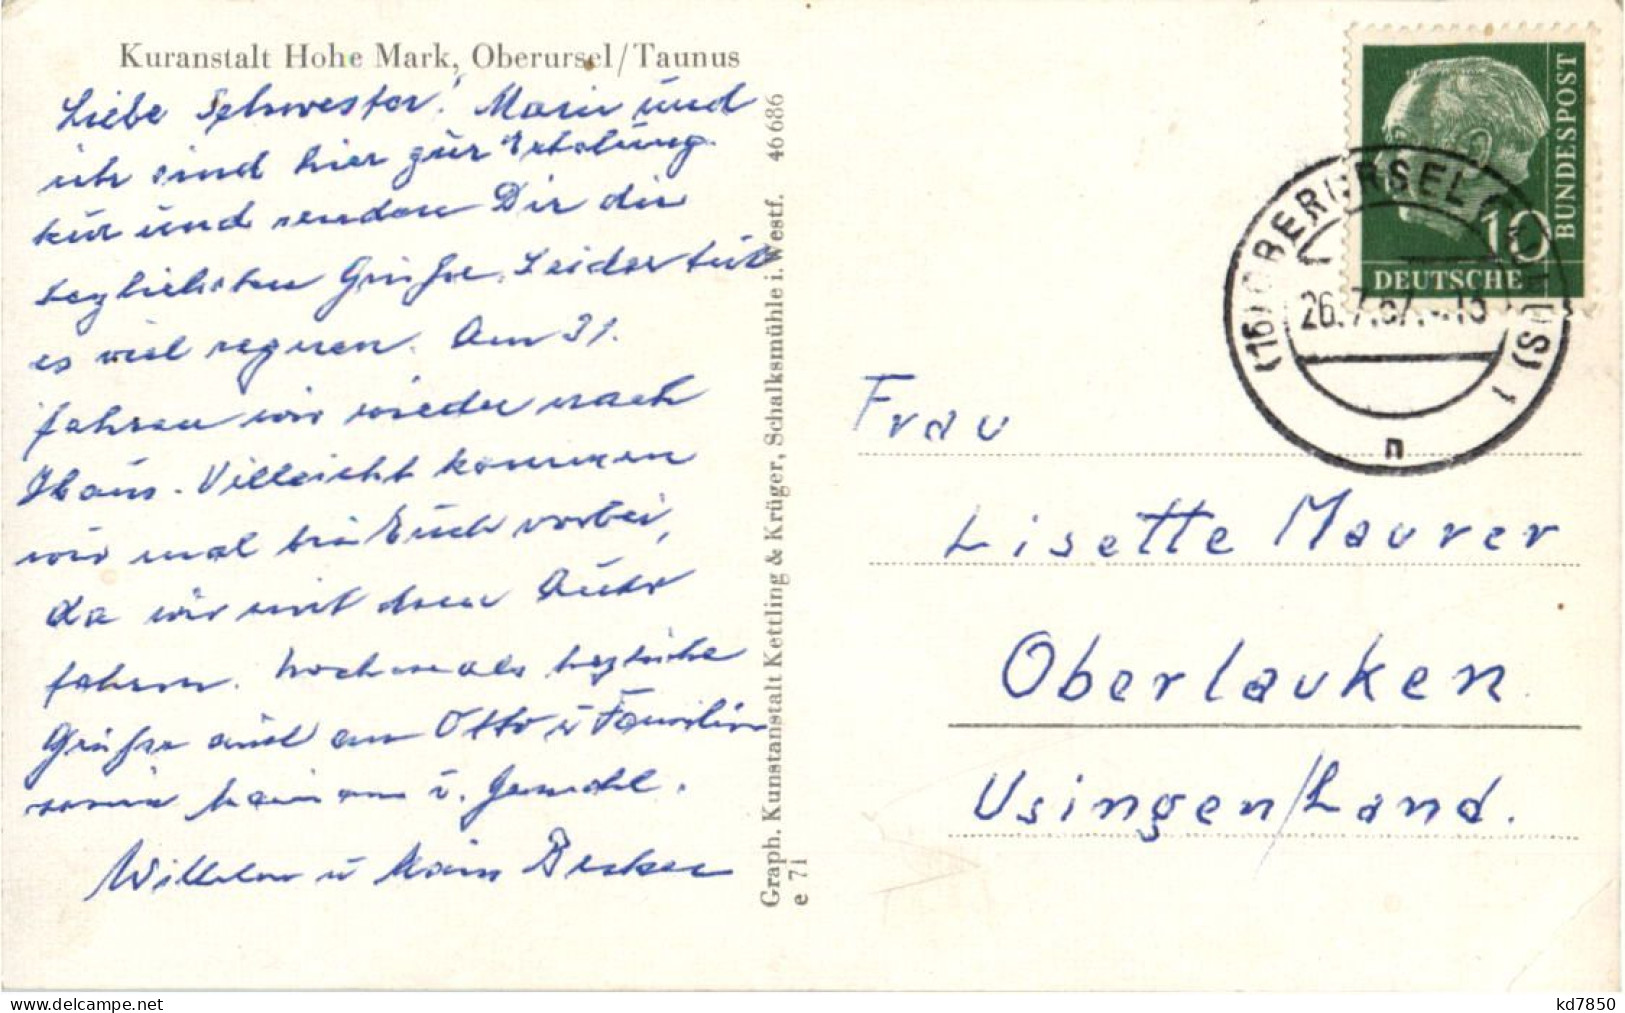 Kuranstalt Hohe Mark, Oberursel/Taunus
Liebe Schwester! Marie und
ich sind hier zur Erholung
kur und senden Dir die
herzlichsten Grüße. Leider tut
es viel regnen. Am 31.
fahren wir wieder nach
Haus. Villeicht kommen
wir mal bei Euch vorbei,
da wir mit dem Auto
fahren. Nochmals herzliche
Grüße auch an Otto u Familie
sowie u. Gemahl.
Wilhelm u Marie Becker
Graph. Kunstanstalt Kettling & Krüger, Schalksmühle i. Westf. 46 686
e 71
10
BUNDESPOST
DEUTSCHE
(16) OBERURSEL (TAUNUS) 1
26.7.57.-15
n
Frau
Lisette Maurer
Oberlauken
Usingen/Land.
www.delcampe.net
kd7850